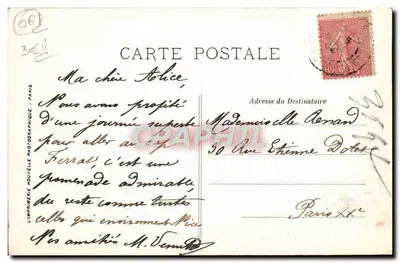 06
3€
CARTE POSTALE
Ma chère Alice,
Nous avons profité
d'une journée superbe
pour aller au cap
Ferrat, c'est une
promenade admirable,
du reste comme toutes
celles qui environnent Nice
Nos amitiés M.
Adresse du Destinataire
Mademoiselle Renard
30 Rue Etienne Dolet
Paris XXe
L'IMPRIMERIE NOUVELLE PHOTOGRAPHIQUE - PARIS